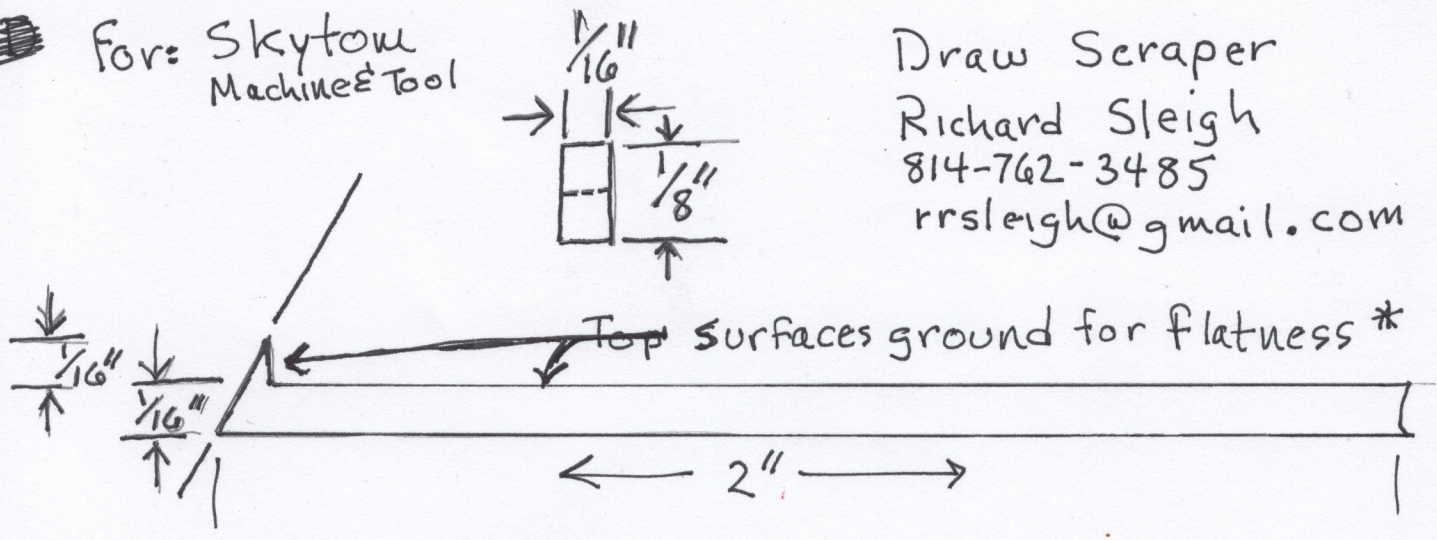 For: Skytom
Machine & Tool
1/16"
1/8"
Draw Scraper
Richard Sleigh
814-762-3485
rrsleigh@gmail.com
Top surfaces ground for flatness *
1/16"
1/16"
2"